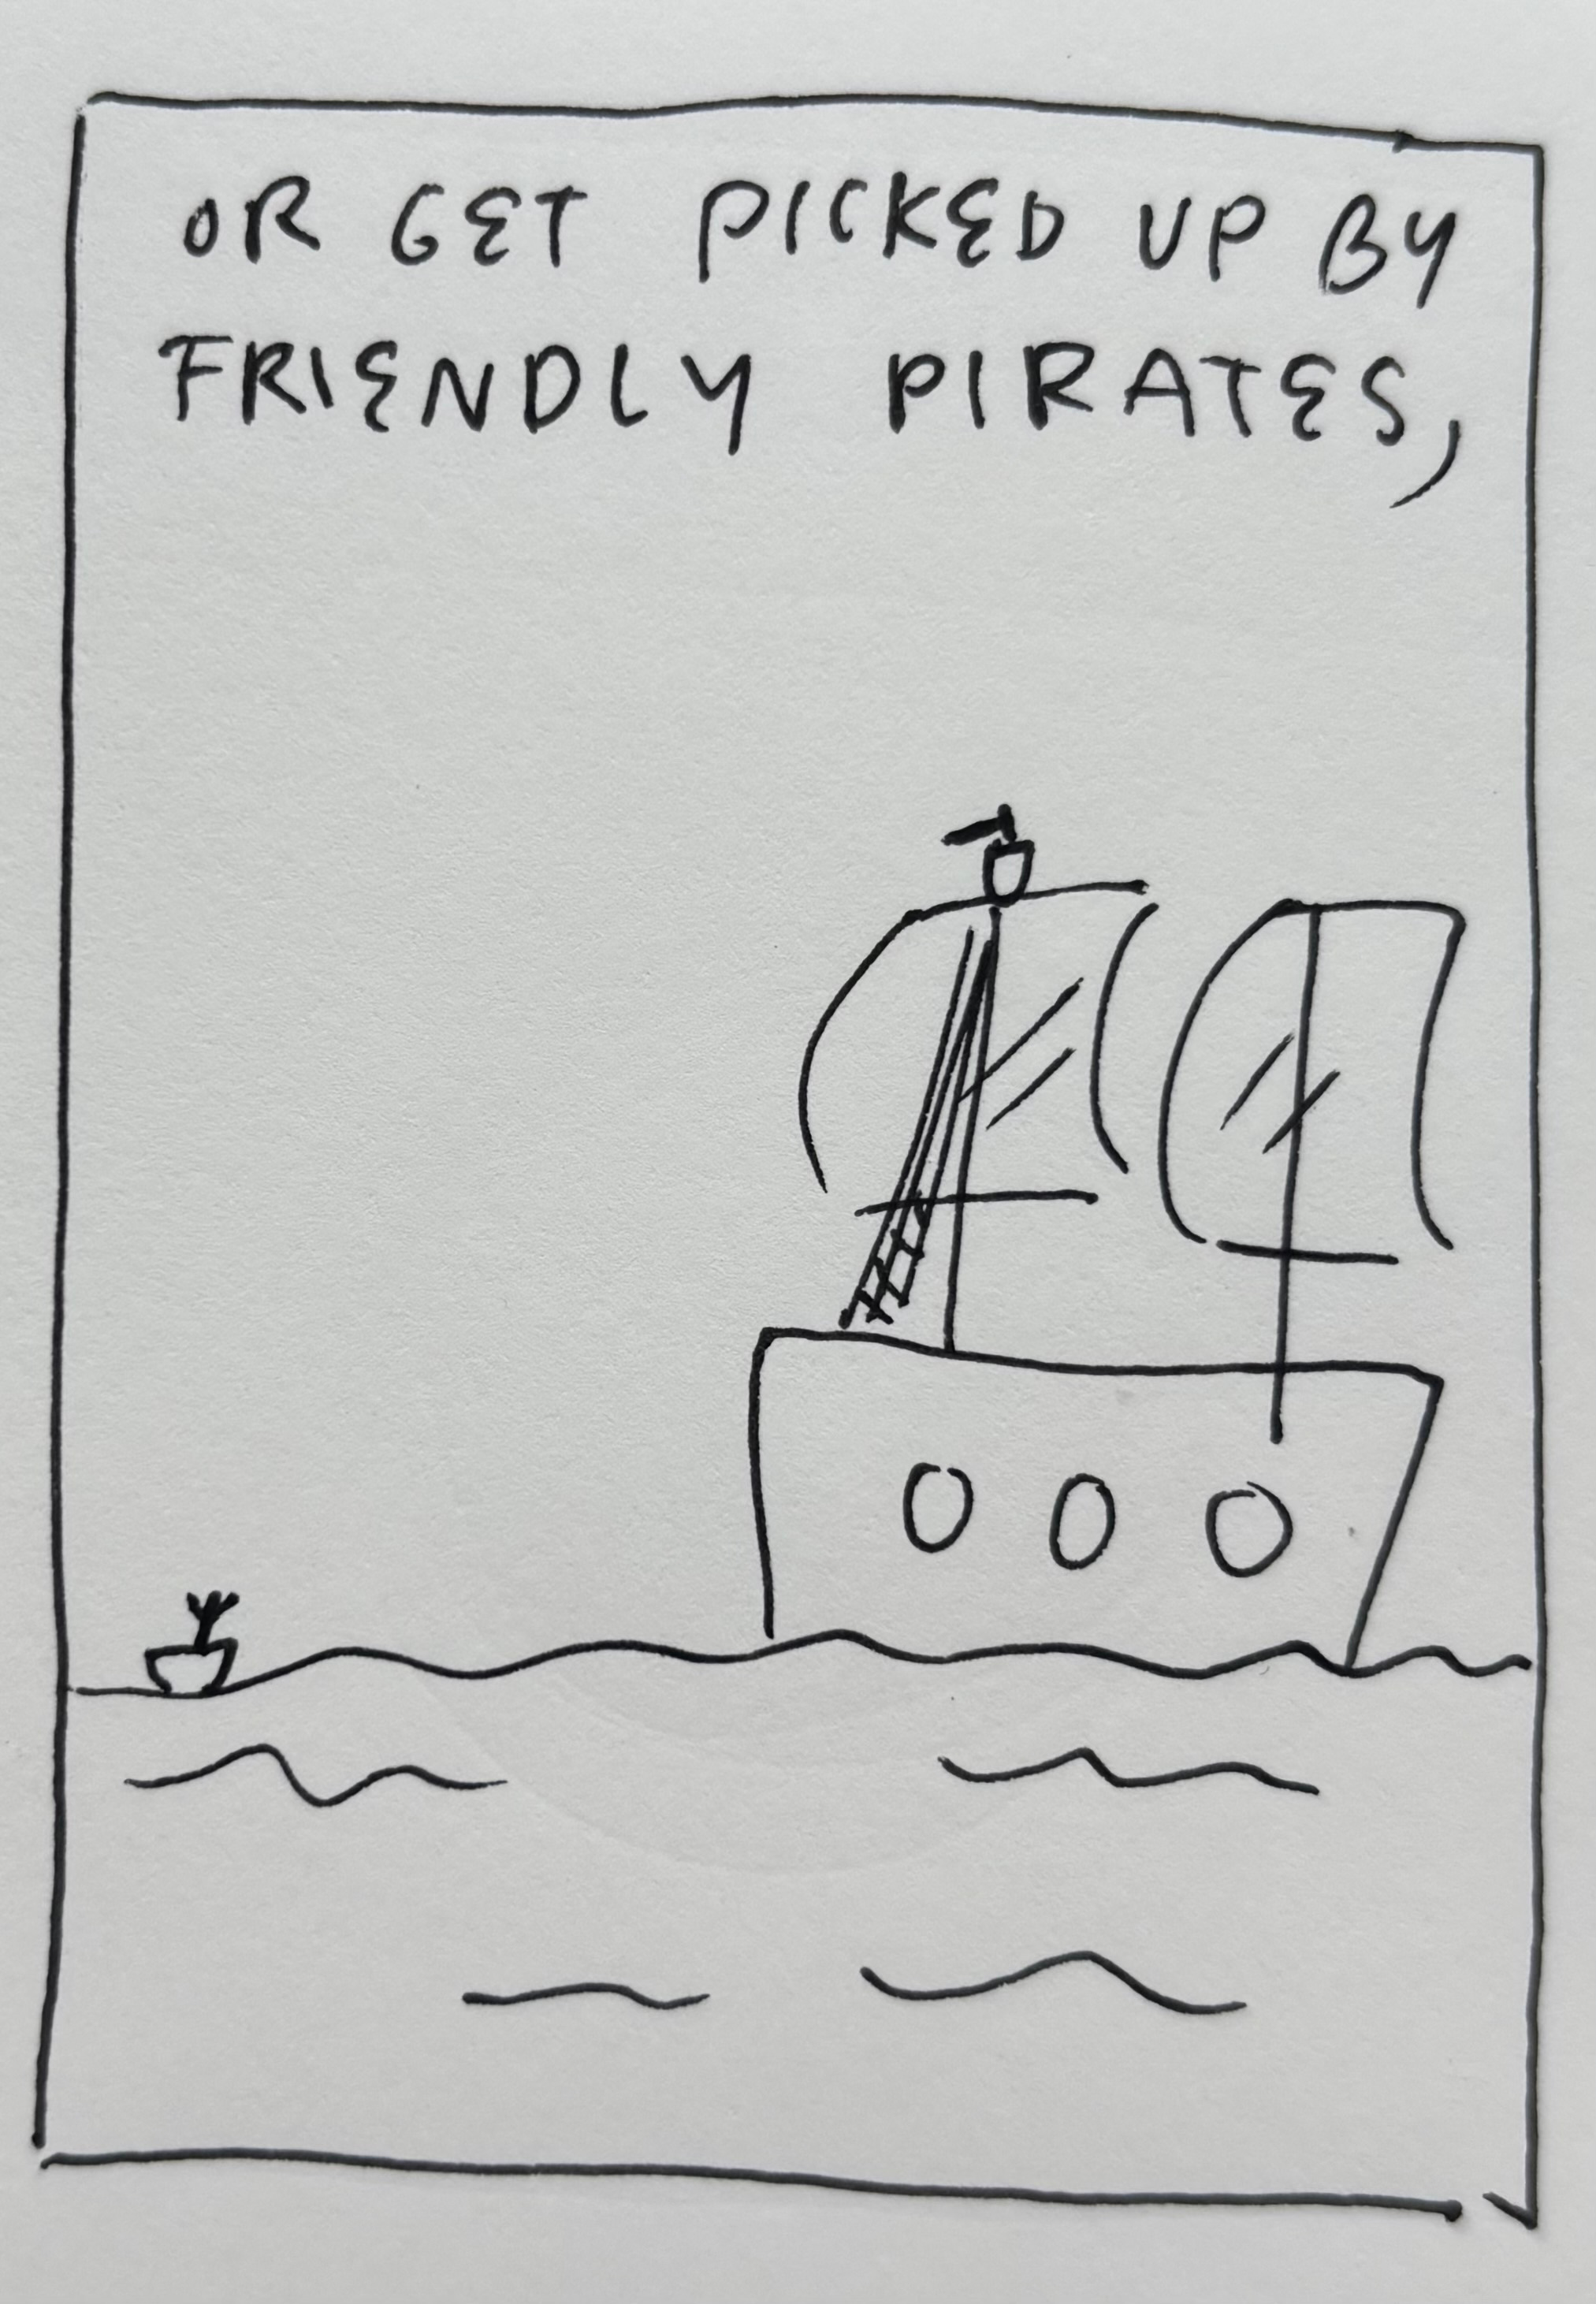 OR GET PICKED UP BY
FRIENDLY PIRATES,